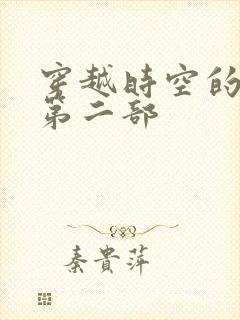 穿越時空的
第二部
秦貴萍